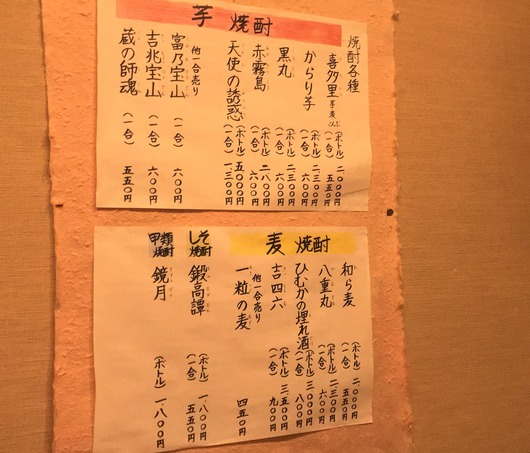 芋焼酎
焼酎各種
喜多里 芋 麦 こんぶ (ボトル) 二、〇〇〇円
(一合) 五五〇円
からり芋 (ボトル) 二、三〇〇円
(一合) 六〇〇円
黒丸 (ボトル) 二、三〇〇円
(一合) 六〇〇円
赤霧島 (ボトル) 二、八〇〇円
(一合) 六〇〇円
天使の誘惑 (ボトル) 五、〇〇〇円
(一合) 一、三〇〇円
他一合売り
富乃宝山 (一合) 六〇〇円
吉兆宝山 (一合) 六〇〇円
蔵の師魂 (一合) 五五〇円
麦焼酎
和ら麦 (ボトル) 二、〇〇〇円
(一合) 五五〇円
八重丸 (ボトル) 二、三〇〇円
(一合) 六〇〇円
ひむかの埋れ酒 (ボトル) 三、〇〇〇円
(一合) 八〇〇円
吉四六 (ボトル) 三、五〇〇円
(一合) 九〇〇円
他一合売り
一粒の麦 四五〇円
しそ焼酎
鍛高譚 (ボトル) 一、八〇〇円
(一合) 五五〇円
甲類焼酎
鏡月 (ボトル) 一、八〇〇円